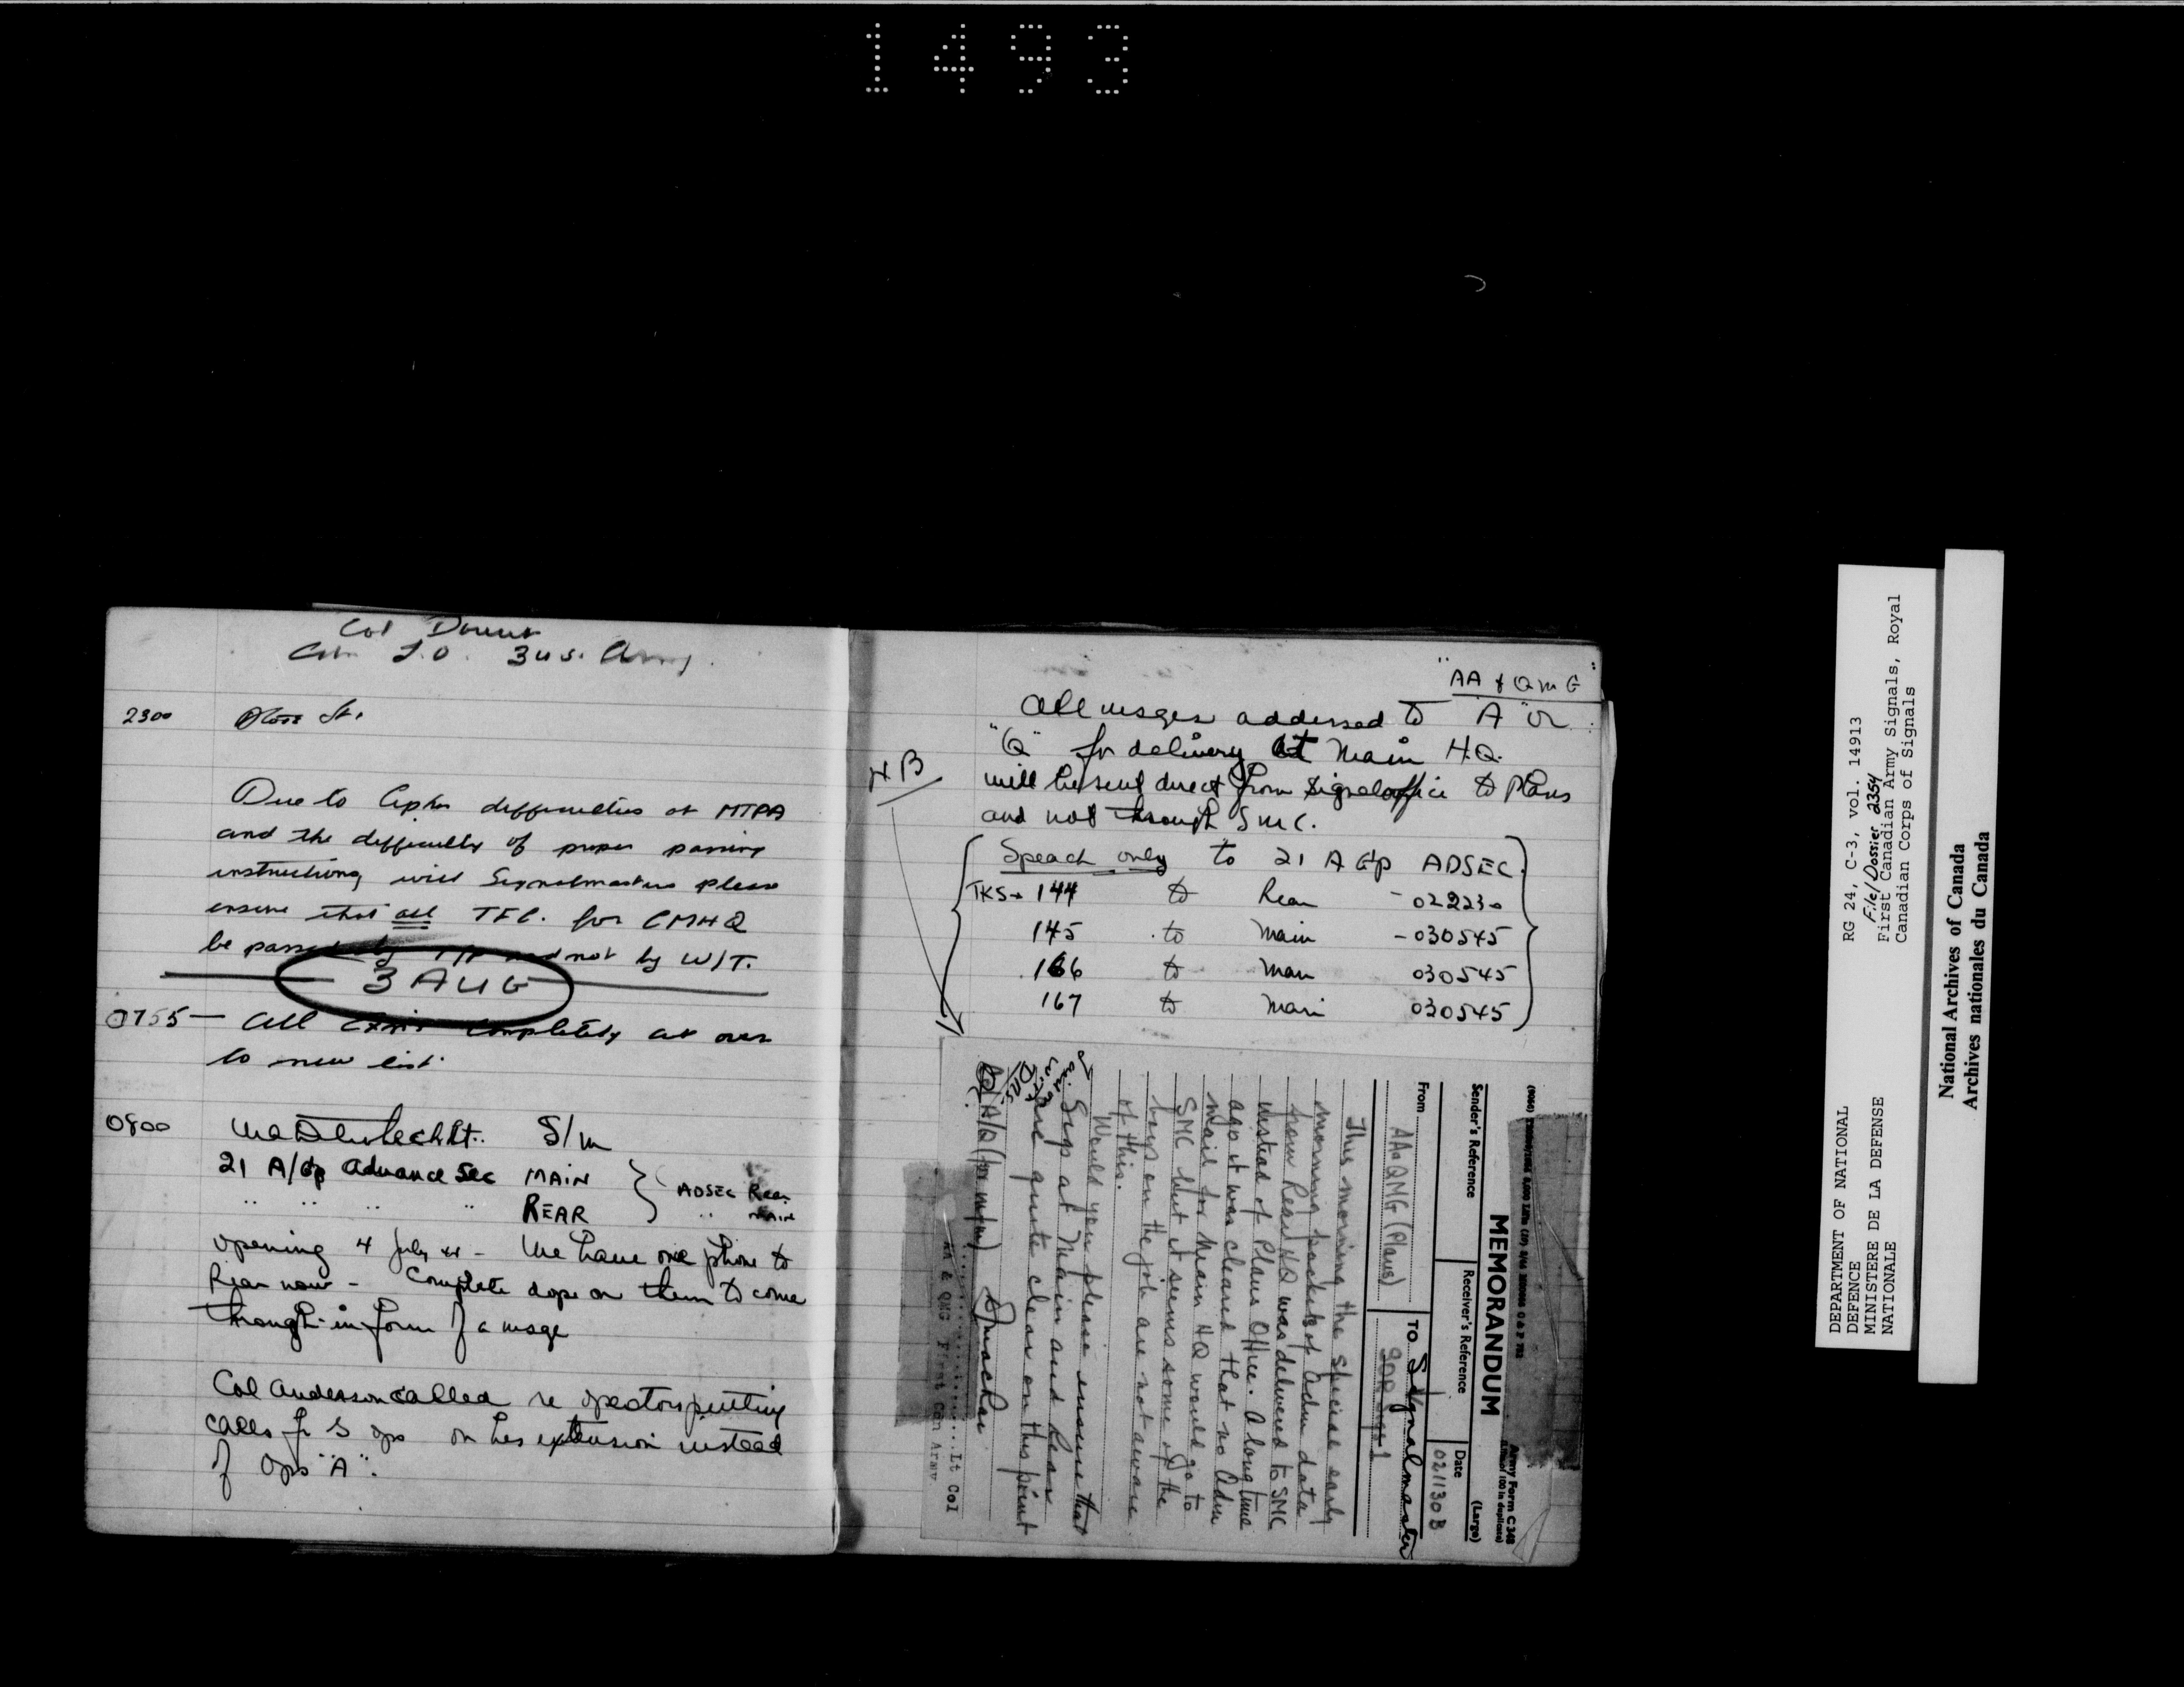 1493
Col
3 U.S. Army
2300
Due to Cipher difficulties at MTPA
and the difficulty of proper passing
instructions, will Signalmasters please
ensure that all TFC. for CMHQ
be passed by T/P and not by W/T.
3 AUG
0755 — All completely cut over
to new list.
0800 S/M
21 A/Gp Advance Sec MAIN
" " " " REAR
ADSEC Rear
" MAIN
opening 4 July 44 - We have one phone to
Rear now - Complete dope on them to come
through in form of a msge
Col Anderson called re operators putting
calls for G ops on his extension instead
of Ops "A".
"AA & QMG"
All msges addressed to "A" or
"Q" for delivery at Main H.Q.
will be sent direct from Signal office to Plans
and not through SMC.
NB
Speach only to 21 A Gp ADSEC.
TKS → 144 to Rear - 022230
145 to Main - 030545
166 to Main 030545
167 to Main 030545
Army Form C 348
(Large)
MEMORANDUM
Sender's Reference
Receiver's Reference
Date
021130B
From AA&QMG (Plans)
TO Signalmaster
This morning the special early
morning packet of Adm data
from Rear HQ was delivered to SMC
instead of Plans Office. A long time
ago it was cleared that no Adm
mail for Main HQ would go to
SMC but it seems some of the
boys on the job are not aware
of this.
Would you please ensure that
Sigs at Main and Rear
are quite clear on this point
Lt Col
AA & QMG First Cdn Army
DEPARTMENT OF NATIONAL
DEFENCE
MINISTERE DE LA DEFENSE
NATIONALE
RG 24, C-3, vol. 14913
File/Dossier 2354
First Canadian Army Signals, Royal
Canadian Corps of Signals
National Archives of Canada
Archives nationales du Canada